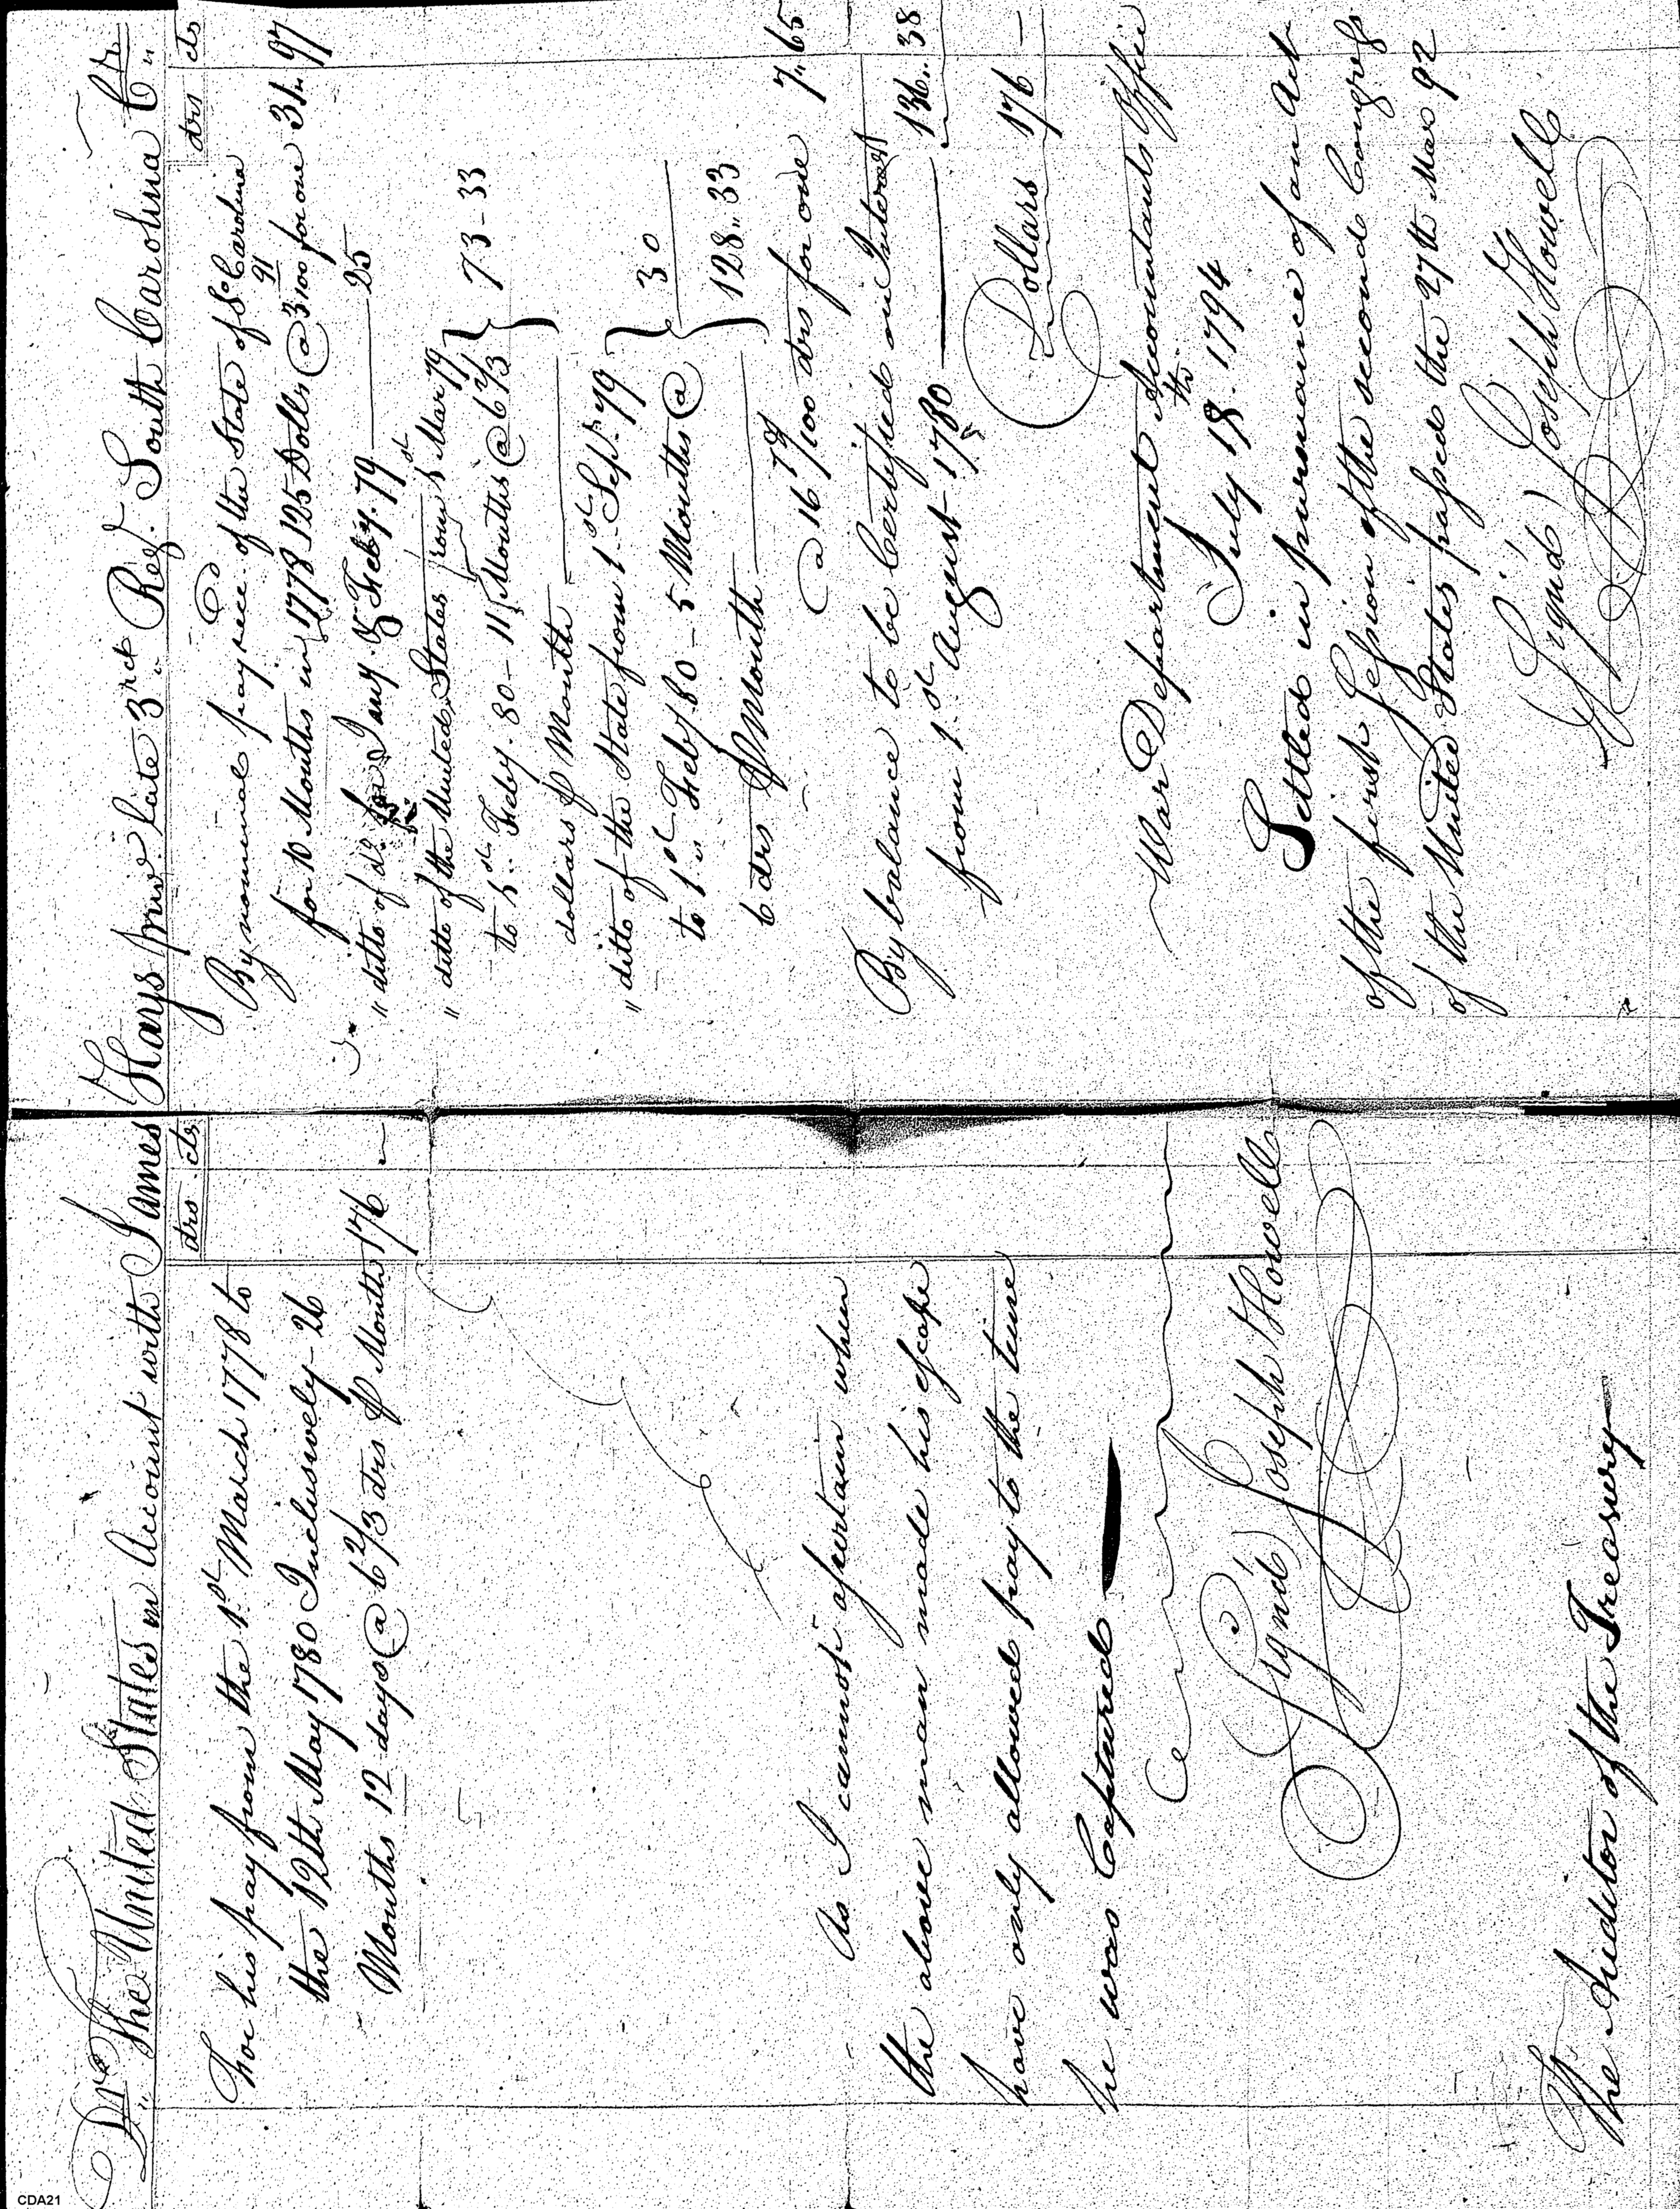 Dr. The United States in Account with James Hays priv.e late 3rd Reg.t South Carolina Cr.
drs cts
For his pay from the 1st March 1778 to
the 12th May 1780 Inclusively - 26
Months 12 days @ 6 2/3 drs ⅌ Month 176 -
As I cannot ascertain when
the above man made his escape
have only allowed pay to the time
he was Captured
(Signd) Joseph Howell
The Auditor of the Treasury
drs cts
By nominal pay rec.d of the State of So Carolina
for 10 Months in 1778 125 Dolls @ 3 91/100 for one 31 „ 97
" ditto of do for Jany & Feby. 79 25
" ditto of the United States from 1st Mar 79
to 1st Feby. 80 - 11 Months @ 6 2/3 } 73 - 33
dollars ⅌ Month
" ditto of the State from 1st Sept. 79
to 1st Feby 80 - 5 Months @ } 30
6 drs ⅌ Month 128 „ 33
@ 16 78/100 drs for one 7 „ 65
By balance to be Certified on Interest
from 1st August 1780 136 „ 38
Dollars 176 -
War Department Accountants Office
July 18th. 1794
Settled in pursuance of an Act
of the first Session of the second Congress
of the United States passed the 27th Mar 92
(Signd) Joseph Howell
CDA21